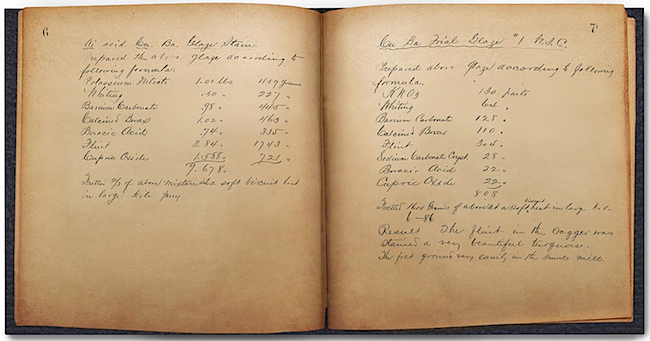 6
acid Cu. Ba. Glaze Stain.
Prepared the above glaze according to
following formula.
Potassium Nitrate 1.01 lbs Grams
Whiting .50 " 227 "
Barium Carbonate .98 " 445 "
Calcined Borax 1.02 " 463 "
Boracic Acid .74 " 335 "
Flint 3.84 " 1743 "
Cupric Oxide 1.588 " 721 "
9.678 "
Fritted of above mixture at a soft biscuit heat
in large kiln
7
Cu Ba Trial Glaze #1
Prepared above glaze according to following
formula.
KNO3 130 parts
Whiting 64 "
Barium Carbonate 128 "
Calcined Borax 110 "
Flint 304 "
Sodium Carbonate Cryst. 28 "
Boracic Acid 22 "
Cupric Oxide 22 "
808
Fritted of above at a soft biscuit heat in large kiln
6-86
Result The flint in the sagger was
stained a very beautiful turquoise.
The frit ground very easily in the small mill.